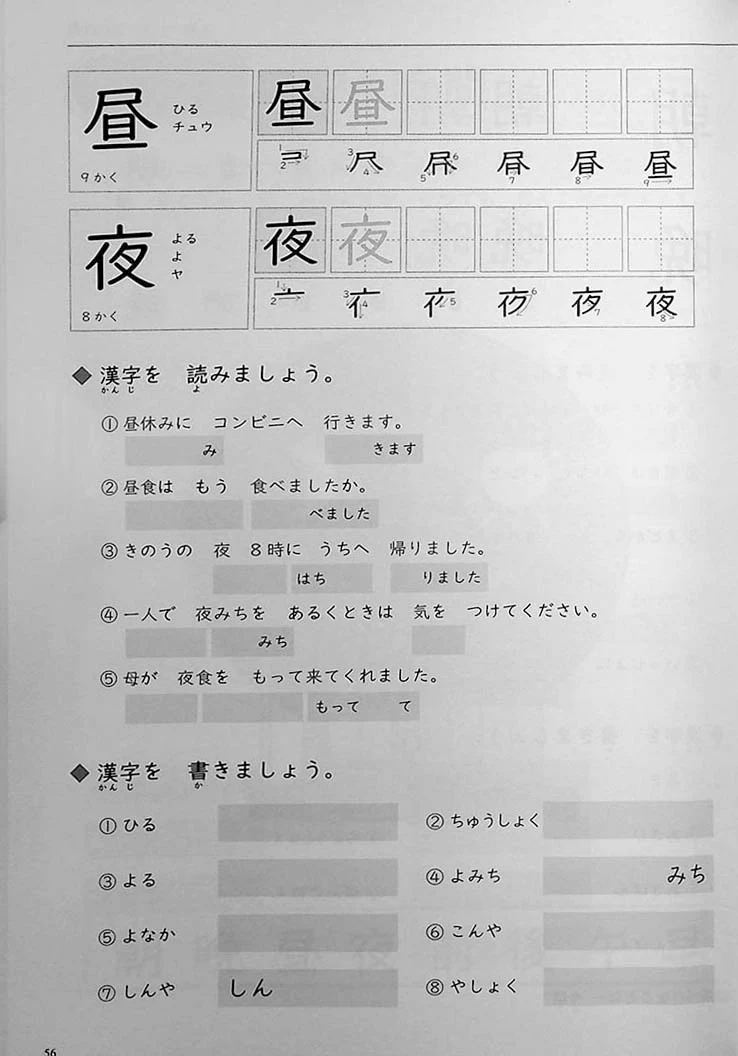 昼 ひる
チュウ
9かく
昼 昼
1 2 3 4 5 6 7 8 9
夜 よる
よ
ヤ
8かく
夜 夜
1 2 3 4 5 6 7 8
◆ 漢字を 読みましょう。
かんじ よ
① 昼休みに コンビニへ 行きます。
み きます
② 昼食は もう 食べましたか。
べました
③ きのうの 夜 8時に うちへ 帰りました。
はち りました
④ 一人で 夜みちを あるくときは 気を つけてください。
みち
⑤ 母が 夜食を もって来てくれました。
もって て
◆ 漢字を 書きましょう。
かんじ か
① ひる ② ちゅうしょく
③ よる ④ よみち みち
⑤ よなか ⑥ こんや
⑦ しんや しん ⑧ やしょく
56